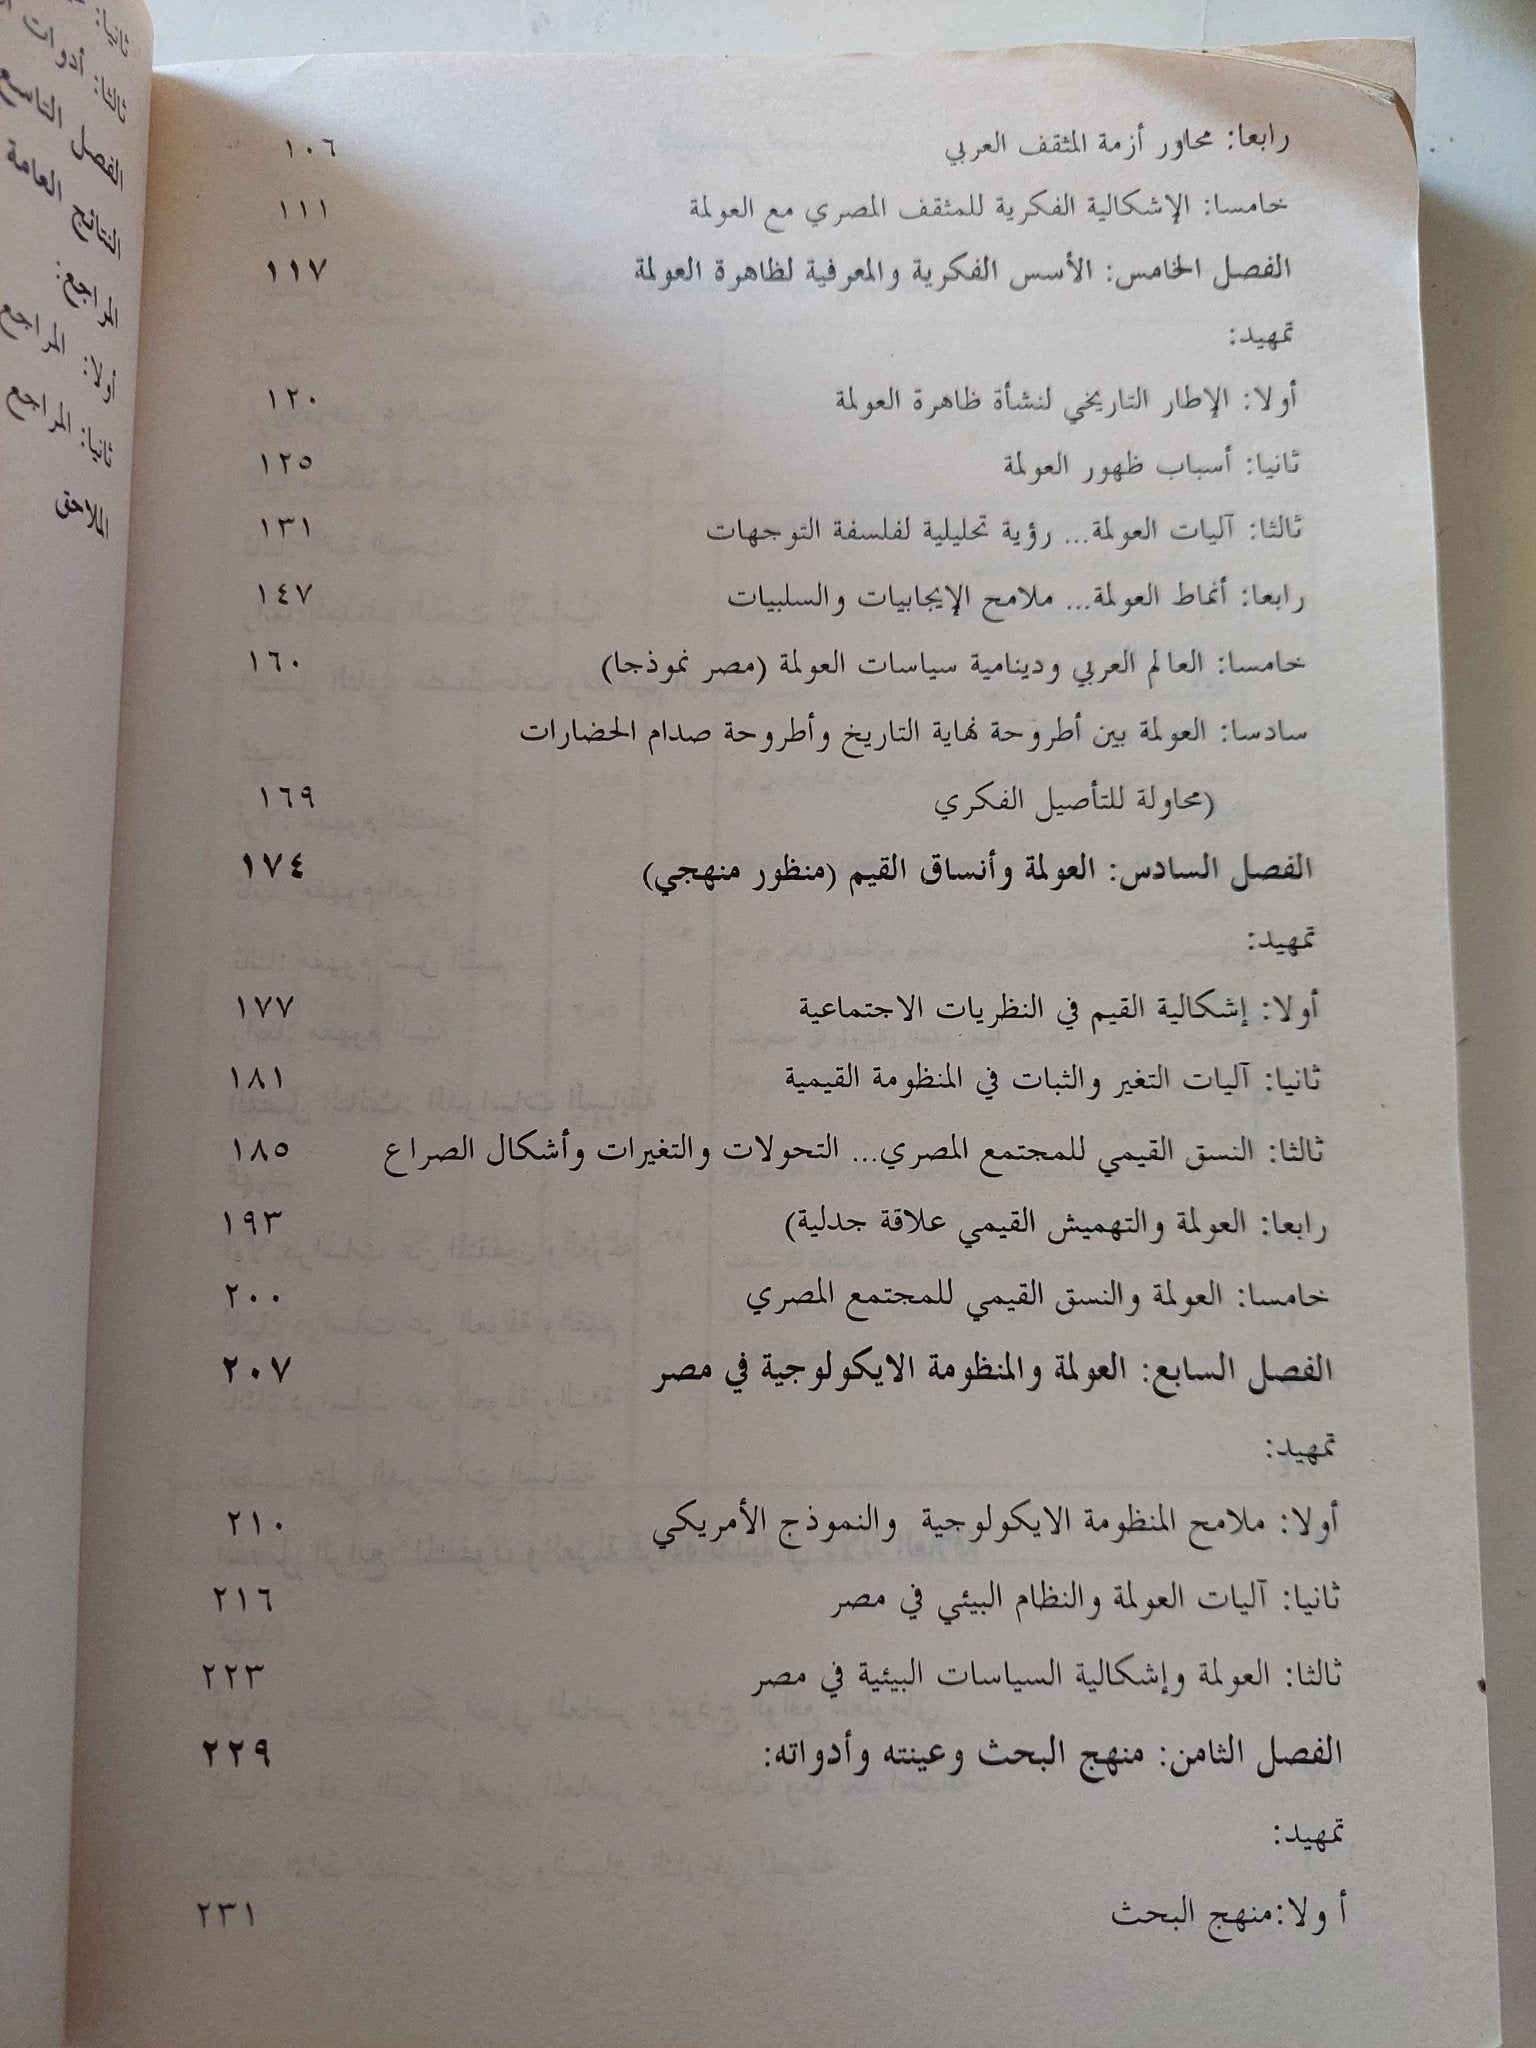 رابعا: محاور أزمة المثقف العربي ١٠٦
خامسا: الإشكالية الفكرية للمثقف المصري مع العولمة ١١١
الفصل الخامس: الأسس الفكرية والمعرفية لظاهرة العولمة ١١٧
تمهيد:
أولا: الإطار التاريخي لنشأة ظاهرة العولمة ١٢٠
ثانيا: أسباب ظهور العولمة ١٢٥
ثالثا: آليات العولمة... رؤية تحليلية لفلسفة التوجهات ١٣١
رابعا: أنماط العولمة... ملامح الإيجابيات والسلبيات ١٤٧
خامسا: العالم العربي ودينامية سياسات العولمة (مصر نموذجا) ١٦٠
سادسا: العولمة بين أطروحة نهاية التاريخ وأطروحة صدام الحضارات
(محاولة للتأصيل الفكري ١٦٩
الفصل السادس: العولمة وأنساق القيم (منظور منهجي) ١٧٤
تمهيد:
أولا: إشكالية القيم في النظريات الاجتماعية ١٧٧
ثانيا: آليات التغير والثبات في المنظومة القيمية ١٨١
ثالثا: النسق القيمي للمجتمع المصري... التحولات والتغيرات وأشكال الصراع ١٨٥
رابعا: العولمة والتهميش القيمي علاقة جدلية) ١٩٣
خامسا: العولمة والنسق القيمي للمجتمع المصري ٢٠٠
الفصل السابع: العولمة والمنظومة الايكولوجية في مصر ٢٠٧
تمهيد:
أولا: ملامح المنظومة الايكولوجية والنموذج الأمريكي ٢١٠
ثانيا: آليات العولمة والنظام البيئي في مصر ٢١٦
ثالثا: العولمة وإشكالية السياسات البيئية في مصر ٢٢٣
الفصل الثامن: منهج البحث وعينته وأدواته: ٢٢٩
تمهيد:
أ ولا:منهج البحث ٢٣١
ثانيا:
ثالثا: أدوات
الفصل التاسع
النتائج العامة
المراجع:
أولا: المراجع
ثانيا: المراجع
الملاحق